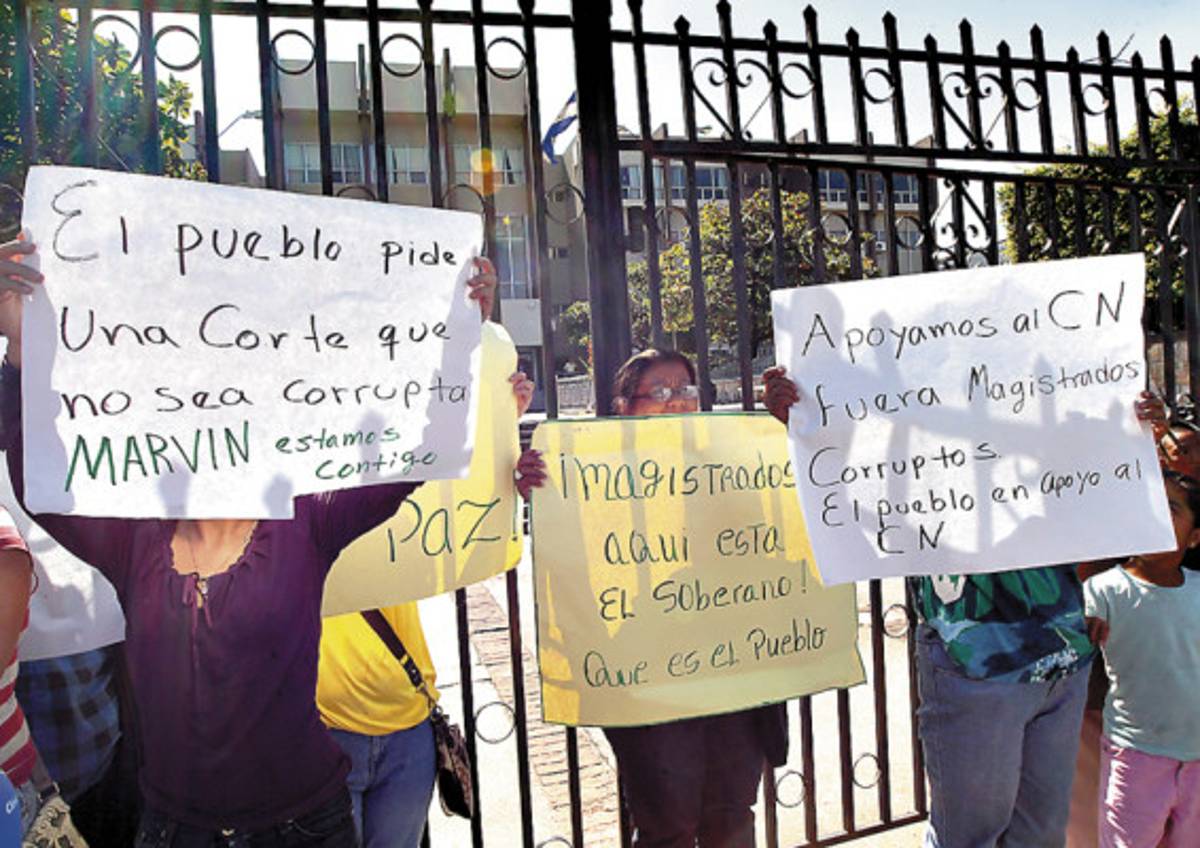 El pueblo pide
Una Corte que
no sea corrupta
MARVIN estamos
contigo
PAZ!
¡MAGISTRADOS
AQUI ESTA
EL SOBERANO!
QUE ES EL PUEBLO
Apoyamos al CN
fuera Magistrados
Corruptos.
El pueblo en apoyo al
CN